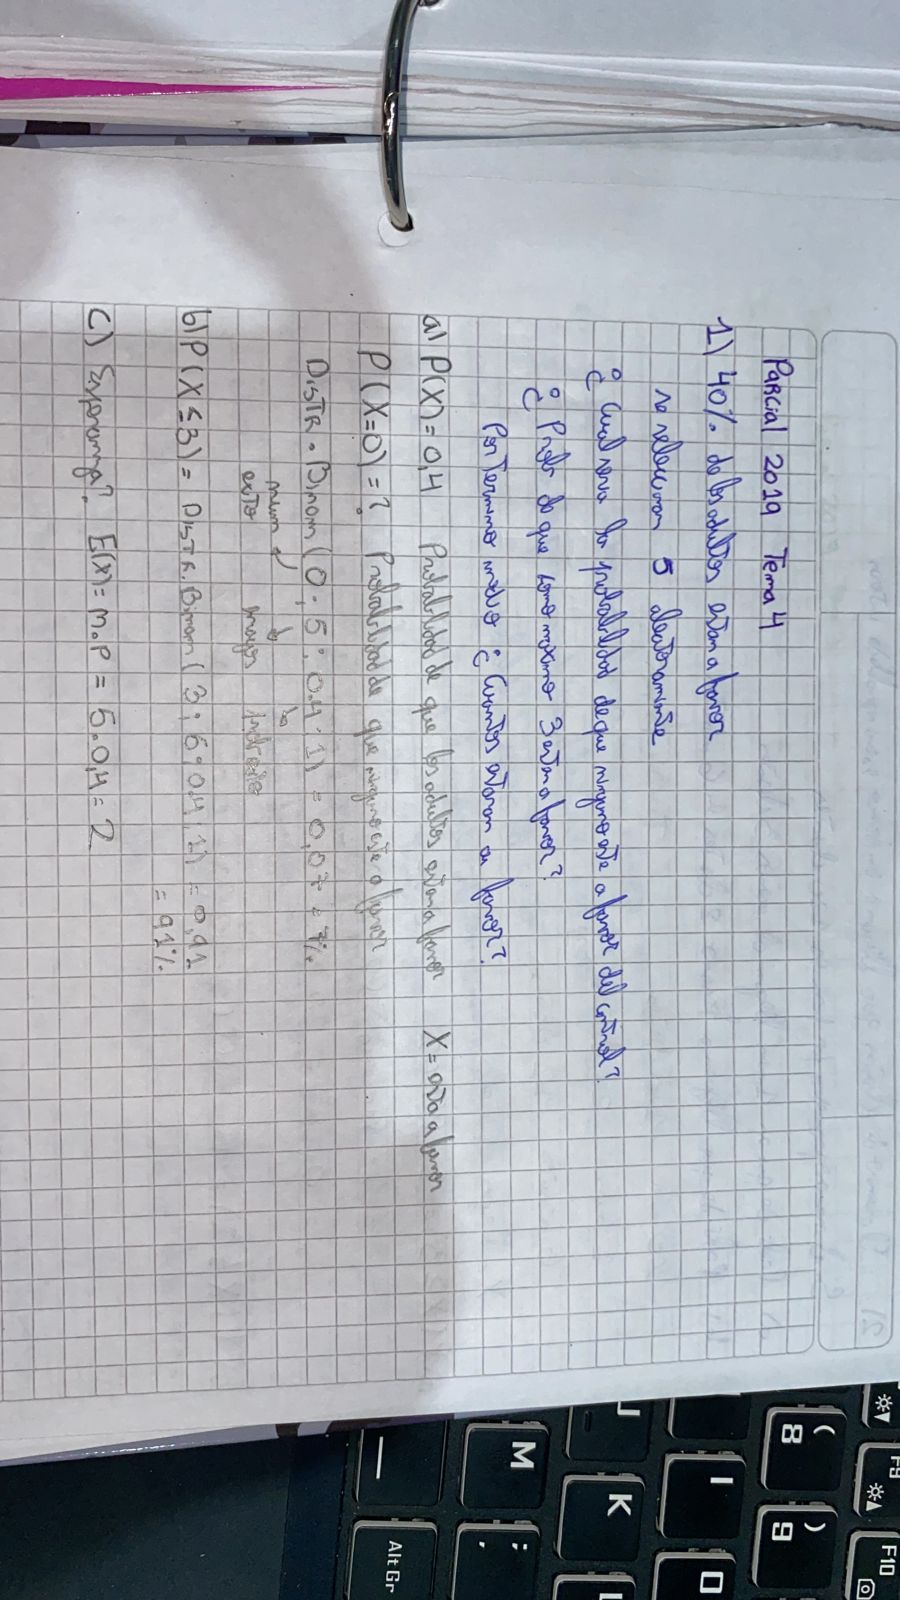 Parcial 2019 Tema 4
1) 40% de los adultos estan a favor
se seleccionan 5 aleatoriamente
¿Cual sera la probabilidad de que ninguno este a favor del control?
¿Prob de que como maximo 3 esten a favor?
Por termino medio ¿Cuantos estaran a favor?
a) P(X) = 0,4 Probabilidad de que los adultos estan a favor X = esta a favor
P(X=0) = ? Probabilidad de que ninguno este a favor
Distr. Binom (0; 5; 0.4; 1) = 0,07 = 7%
num
exito
b) P(X≤3) = Distr. Binom (3; 5; 0.4; 1) = 0,91
= 91%
c) Esperanza? E(x) = n.p = 5.0,4 = 2
( 8
) 9
U
I
O
K
L
M
;
,
_
-
Alt Gr
F9
F10